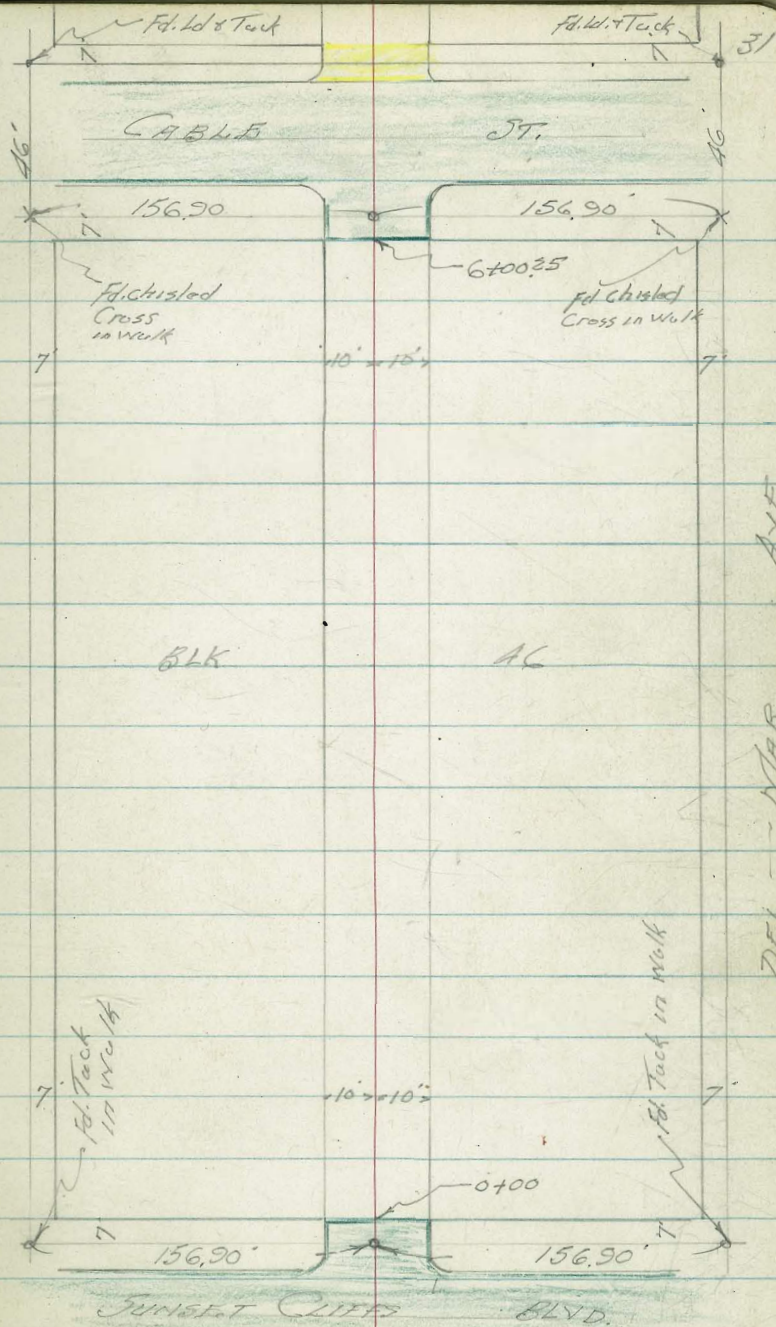 Fd. Ld & Tack Fd. Ld. & Tack 31
7' 7'
CABLE ST.
46' 46'
156.90 156.90'
7' 7'
6+00.25
Fd. Chisled
Cross
in Walk
Fd Chisled
Cross in Walk
7' 10' 10' 7'
BLK 46
DEL MAR AVE
Fd. Tack
in Walk
Fd. Tack in Walk
7' 10' 10' 7'
0+00
7' 7'
156.90' 156.90'
SUNSET CLIFFS BLVD.